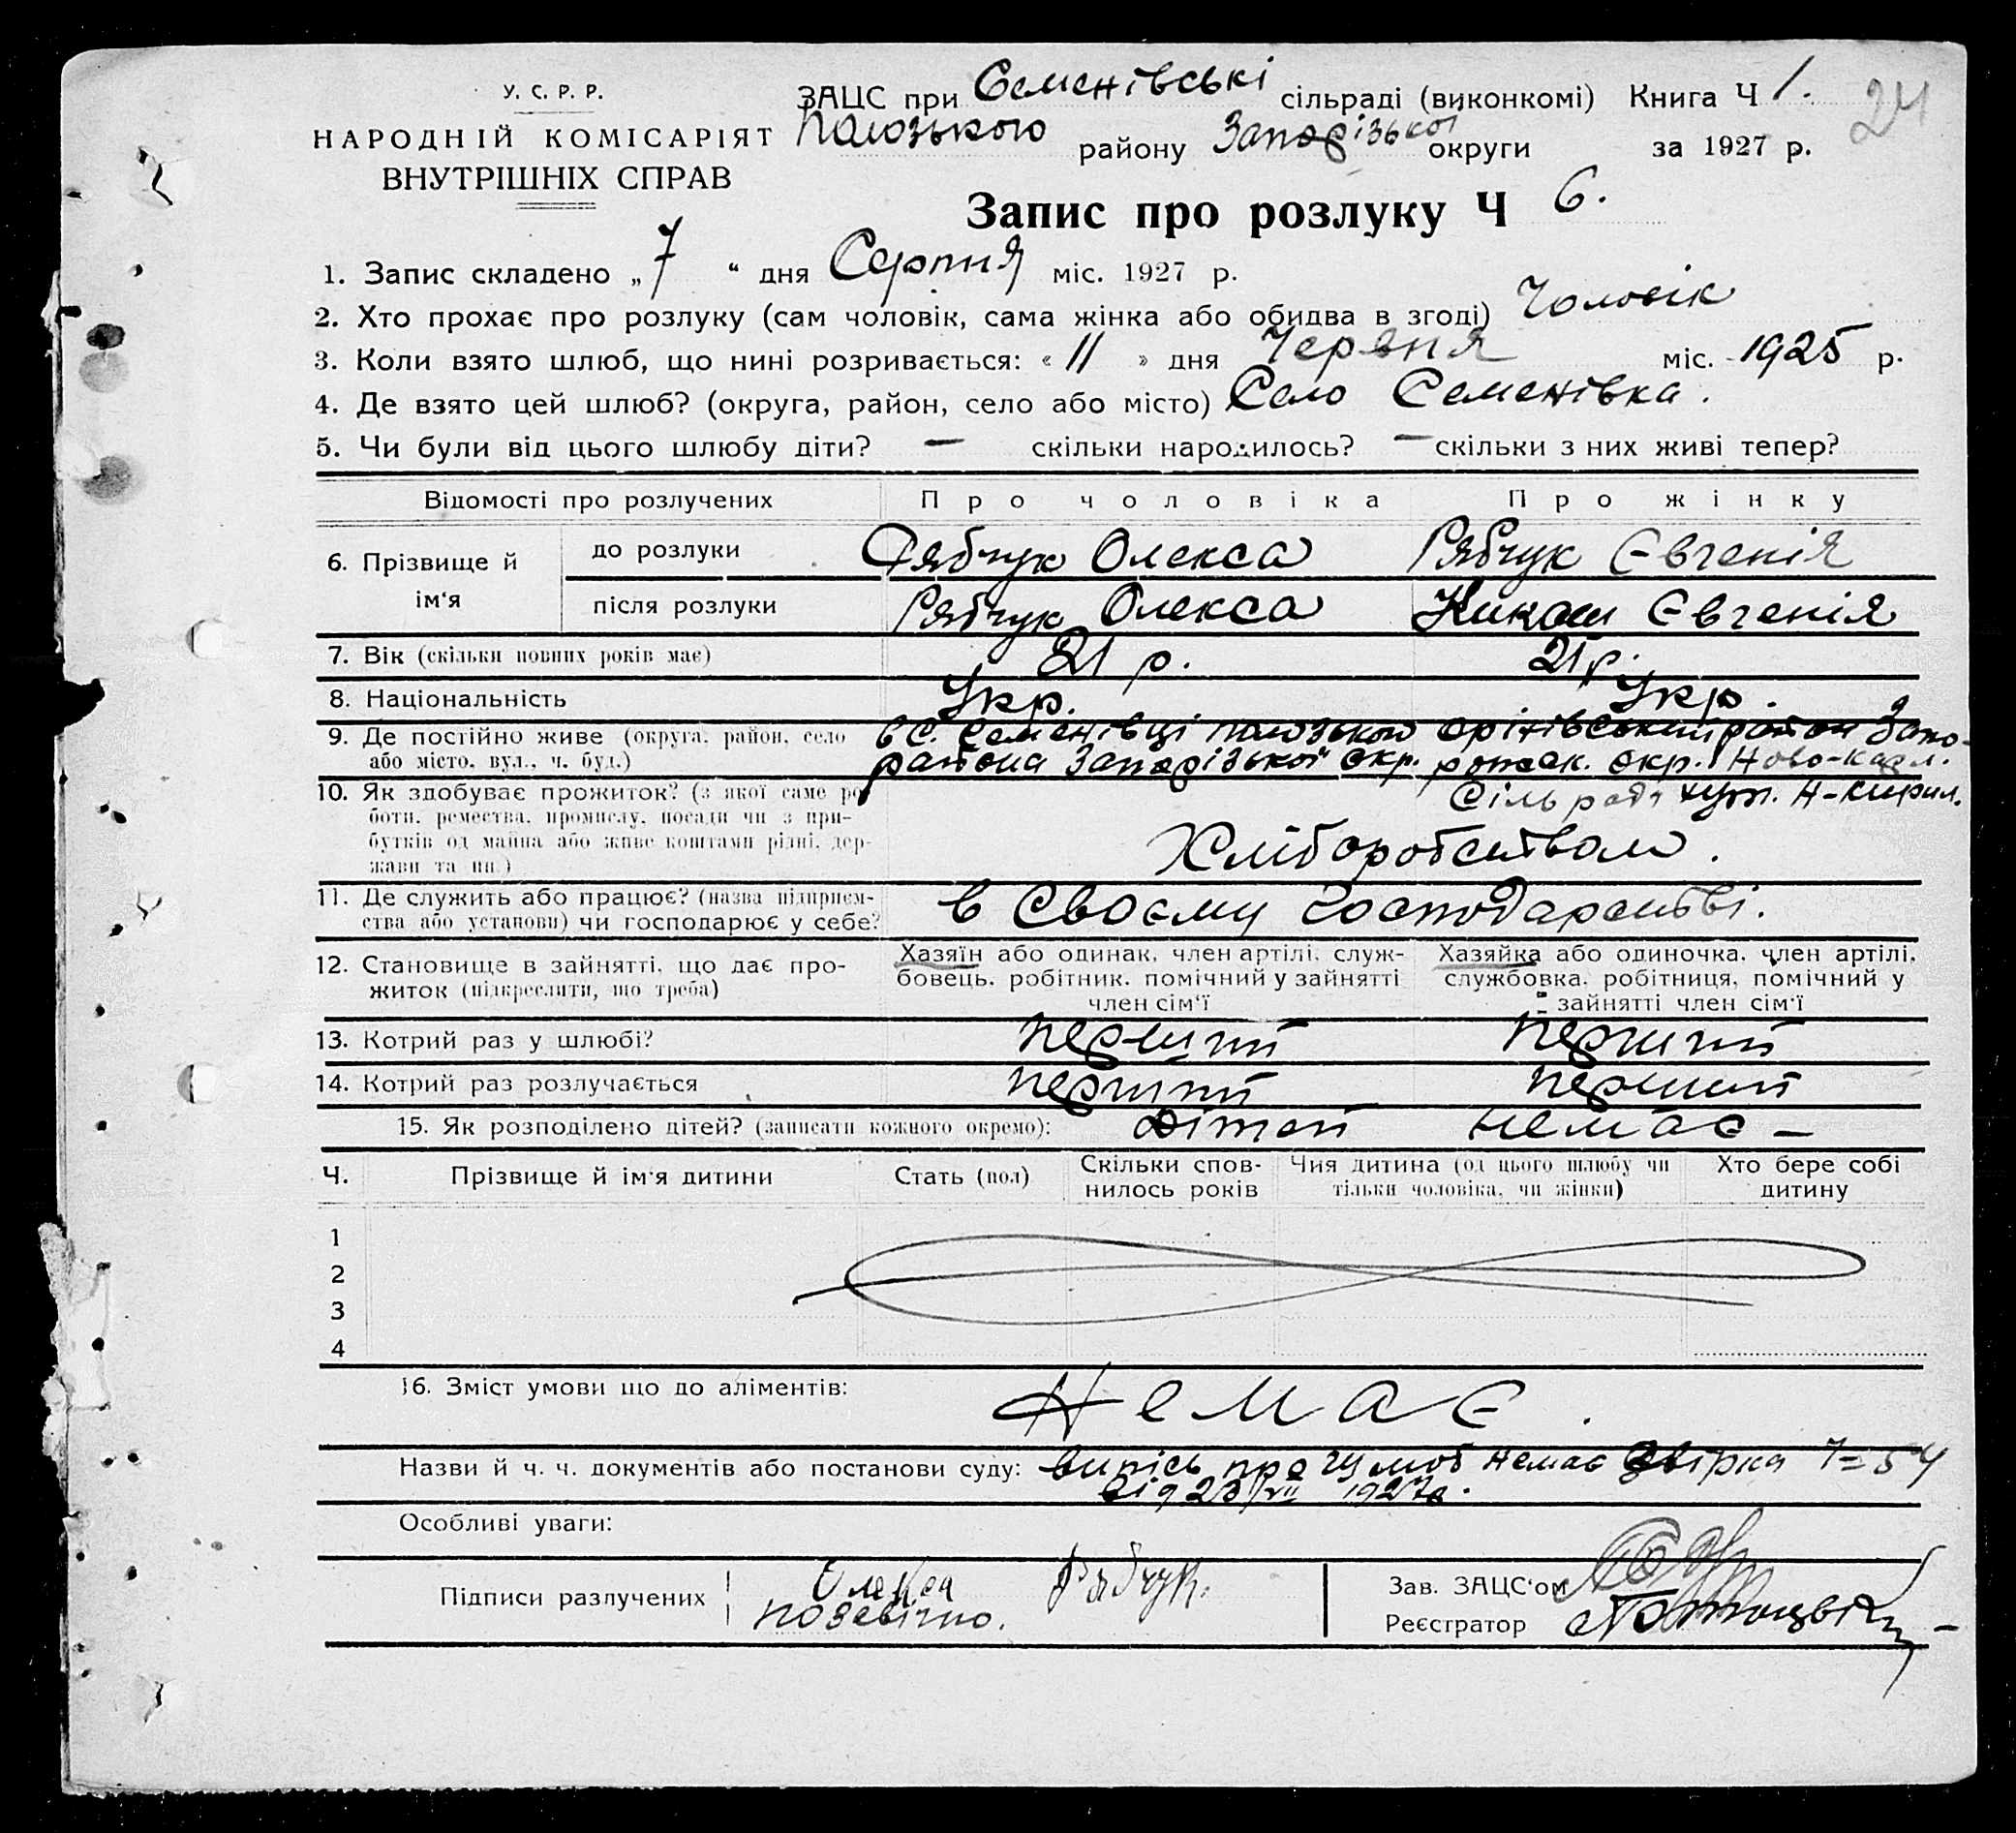 У. С. Р. Р.
НАРОДНІЙ КОМІСАРІЯТ
ВНУТРІШНІХ СПРАВ
ЗАЦС при Семенівські сільраді (виконкомі) Книга Ч 1. 24
Пологзького району Запорізької округи за 1927 р.
Запис про розлуку Ч 6.
1. Запис складено „7“ дня Серпня міс. 1927 р.
2. Хто прохає про розлуку (сам чоловік, сама жінка або обидва в згоді) Чоловік
3. Коли взято шлюб, що нині розривається: «11» дня Червня міс. 1925 р.
4. Де взято цей шлюб? (округа, район, село або місто) Село Семенівка.
5. Чи були від цього шлюбу діти? — скільки народилось? — скільки з них живі тепер?
Відомості про розлучених Про чоловіка Про жінку
6. Прізвище й ім'я до розлуки Рябчук Олекса Рябчук Євгенія
після розлуки Рябчук Олекса Євгенія
7. Вік (скільки повних років має) 21 р. 21 р.
8. Національність Укр. Укр.
9. Де постійно живе (округа, район, село або місто, вул., ч. буд.) в с. Семенівці району Запорізької окр. район Запо- окр. Ново-
Сіль рада хут. Н-Кирил.
10. Як здобуває прожиток? (з якої саме роботи, ремества, промислу, посади чи з прибутків од майна або живе коштами рідні, держави та ин.) Хліборобством.
11. Де служить або працює? (назва підприємства або установи) чи господарює у себе? в своєму господарстві.
12. Становище в зайнятті, що дає прожиток (підкреслити, що треба) Хазяїн або одинак, член артілі, службовець, робітник, помічний у зайнятті член сім'ї Хазяйка або одиночка, член артілі, службовка, робітниця, помічний у зайнятті член сім'ї
13. Котрий раз у шлюбі? перший перший
14. Котрий раз розлучається перший перший
15. Як розподілено дітей? (записати кожного окремо): Дітей немає —
Ч. Прізвище й ім'я дитини Стать (пол) Скільки сповнилось років Чия дитина (од цього шлюбу чи тільки чоловіка, чи жінки) Хто бере собі дитину
1
2
3
4
16. Зміст умови що до аліментів: Немає.
Назви й ч. ч. документів або постанови суду: випісь про шлюб немає
від 23/VII 1927р.
Особливі уваги:
Підписи разлучених Олекса Рябчук.
Зав. ЗАЦС'ом
Реєстратор